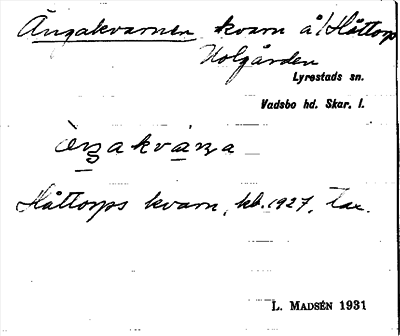 Ängakvarnen kvarn å/Håttorps
Holgården
Lyrestads sn.
Vadsbo hd. Skar. l.
Håttorps kvarn, kb. 1927, tax.
L. MADSÉN 1931